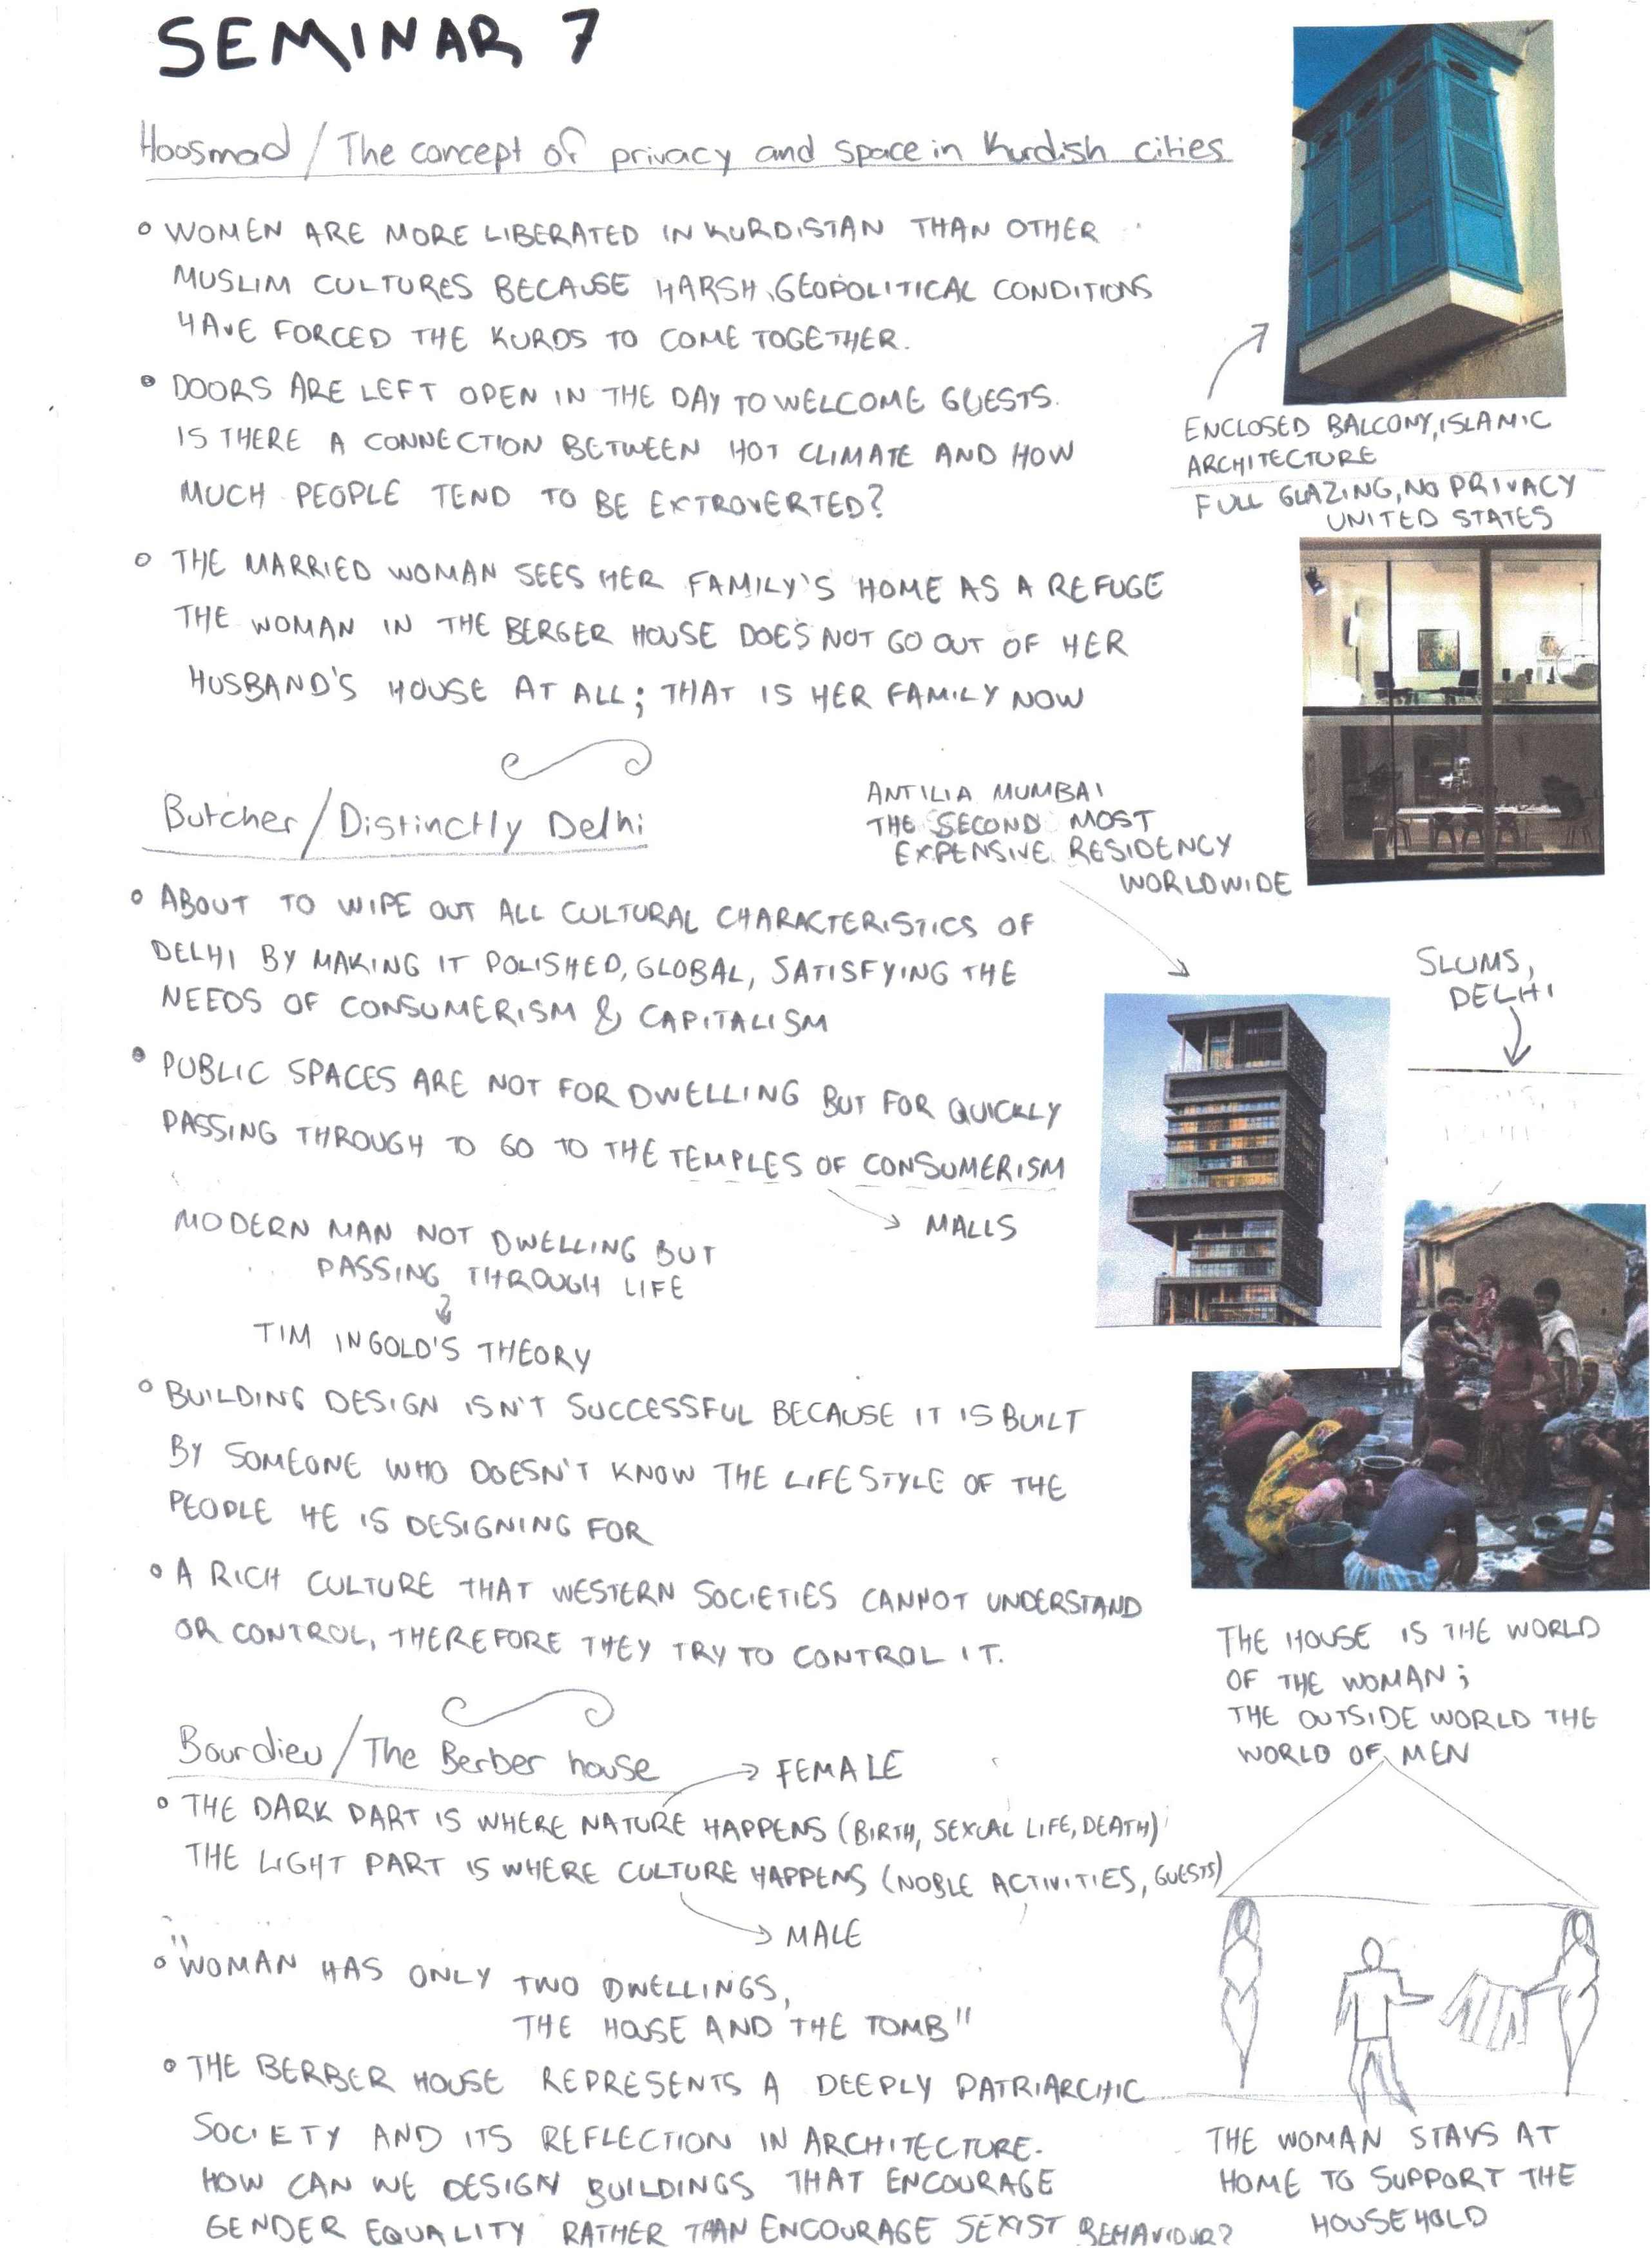 SEMINAR 7
Hoosmad / The concept of privacy and space in Kurdish cities
WOMEN ARE MORE LIBERATED IN KURDISTAN THAN OTHER
MUSLIM CULTURES BECAUSE HARSH GEOPOLITICAL CONDITIONS
HAVE FORCED THE KURDS TO COME TOGETHER.
DOORS ARE LEFT OPEN IN THE DAY TO WELCOME GUESTS.
IS THERE A CONNECTION BETWEEN HOT CLIMATE AND HOW
MUCH PEOPLE TEND TO BE EXTROVERTED?
THE MARRIED WOMAN SEES HER FAMILY'S HOME AS A REFUGE
THE WOMAN IN THE BERGER HOUSE DOES NOT GO OUT OF HER
HUSBAND'S HOUSE AT ALL; THAT IS HER FAMILY NOW
ENCLOSED BALCONY, ISLAMIC
ARCHITECTURE
FULL GLAZING, NO PRIVACY
UNITED STATES
Butcher / Distinctly Delhi
ANTILIA MUMBAI
THE SECOND MOST
EXPENSIVE RESIDENCY
WORLDWIDE
ABOUT TO WIPE OUT ALL CULTURAL CHARACTERISTICS OF
DELHI BY MAKING IT POLISHED, GLOBAL, SATISFYING THE
NEEDS OF CONSUMERISM & CAPITALISM
PUBLIC SPACES ARE NOT FOR DWELLING BUT FOR QUICKLY
PASSING THROUGH TO GO TO THE TEMPLES OF CONSUMERISM
MALLS
SLUMS,
DELHI
MODERN MAN NOT DWELLING BUT
PASSING THROUGH LIFE
TIM INGOLD'S THEORY
BUILDING DESIGN ISN'T SUCCESSFUL BECAUSE IT IS BUILT
BY SOMEONE WHO DOESN'T KNOW THE LIFESTYLE OF THE
PEOPLE HE IS DESIGNING FOR
A RICH CULTURE THAT WESTERN SOCIETIES CANNOT UNDERSTAND
OR CONTROL, THEREFORE THEY TRY TO CONTROL IT.
THE HOUSE IS THE WORLD
OF THE WOMAN;
THE OUTSIDE WORLD THE
WORLD OF MEN
Bourdieu / The Berber house
FEMALE
THE DARK PART IS WHERE NATURE HAPPENS (BIRTH, SEXUAL LIFE, DEATH)
THE LIGHT PART IS WHERE CULTURE HAPPENS (NOBLE ACTIVITIES, GUESTS)
MALE
"WOMAN HAS ONLY TWO DWELLINGS,
THE HOUSE AND THE TOMB"
THE BERBER HOUSE REPRESENTS A DEEPLY PATRIARCHIC
SOCIETY AND ITS REFLECTION IN ARCHITECTURE.
HOW CAN WE DESIGN BUILDINGS THAT ENCOURAGE
GENDER EQUALITY RATHER THAN ENCOURAGE SEXIST BEHAVIOUR?
THE WOMAN STAYS AT
HOME TO SUPPORT THE
HOUSEHOLD